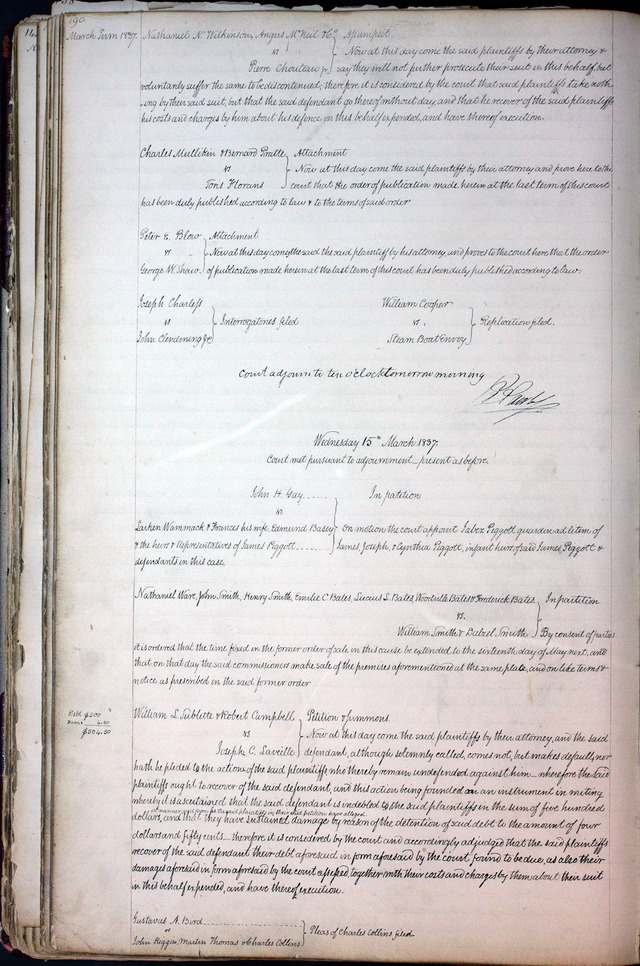 190
March Term 1837. Nathaniel N. Wilkinson, Angus McNeil & Co } Assumpsit
vs } Now at this day come the said plaintiffs by their attorney &
Pierre Chouteau Jr } say they will not further prosecute their suit in this behalf but
voluntarily suffer the same to be discontinued, therefore it is considered by the court that said plaintiffs take noth
-ing by their said suit, but that the said defendant go thereof without day, and that he recover of the said plaintiffs
his costs and charges by him about his defence in this behalf expended, and have thereof execution.
Charles Mullikin & Bernard Pratte } Attachment
vs } Now at this day come the said plaintiffs by their attorney and prove here to the
Toris Florans } court that the order of publication made herein at the last term of this court
has been duly published according to law & to the terms of said order
Peter E. Blow } Attachment
vs } Now at this day comes the said the said plaintiff by his attorney, and proves to the court here that the order
George W. Shaw } of publication made herein at the last term of this court has been duly published according to law.
Joseph Charless } William Cooper }
vs } Interrogatories filed vs. } Replication filed.
John Clendening Jr } Steam Boat Envoy }
Court adjourn to ten o'clock tomorrow morning
Wednesday 15th March 1837.
Court met pursuant to adjournment – present as before.
John H. Gay ...... } In partition
vs
Larken Wammack & Frances his wife, Edmund Basey } On motion the court appoint Jabez Peggott guardian ad letem of
& the heirs & Representatives of James Piggott ...... } James, Joseph, & Cynthia Peggott, infant heirs of said James Piggott &
defendants in this case.
Nathaniel Ware, John Smith, Henry Smith, Emilie C Bates, Lucius L. Bates, Woodville Bates & Frederick Bates } In partition
vs.
William Smith & Dalzel Smith } By consent of parties
it is ordered that the time fixed in the former order of sale in this cause be extended to the sixteenth day of May next, and
that on that day the said commissioners make sale of the premises aforementioned at the same place, and on like terms &
notice as prescribed in the said former order
Debt $500
Dams 4.50
$504.50
William L. Sublette & Robert Campbell } Petition & Summons.
vs } Now at this day come the said plaintiffs by their attorney, and the said
Joseph C. Laveille } defendant, although solemnly called, comes not, but makes default, nor
hath he pleded to the action of the said plaintiffs who thereby remain undefended against him – wherefore the said
plaintiffs ought to recover of the said defendant, and this action being founded on an instrument in writing
whereby it is ascertained that the said defendant is indebted to the said plaintiffs in the sum of five hundred
dollars, and that they have sustained damage by reason of the detention of said debt to the amount of four
dollars and fifty cents – therefore it is considered by the court and accordingly adjudged that the said plaintiffs
recover of the said defendant their debt aforesaid in form aforesaid by the court found to be due, as also their
damages aforesaid in form aforesaid by the court assessed, together with their costs and charges by them about their suit
in this behalf expended, and have thereof execution.
Gustavus A. Bird ...... }
vs } Pleas of Charles Collins filed.
John Riggin, Martin Thomas & Charles Collins }